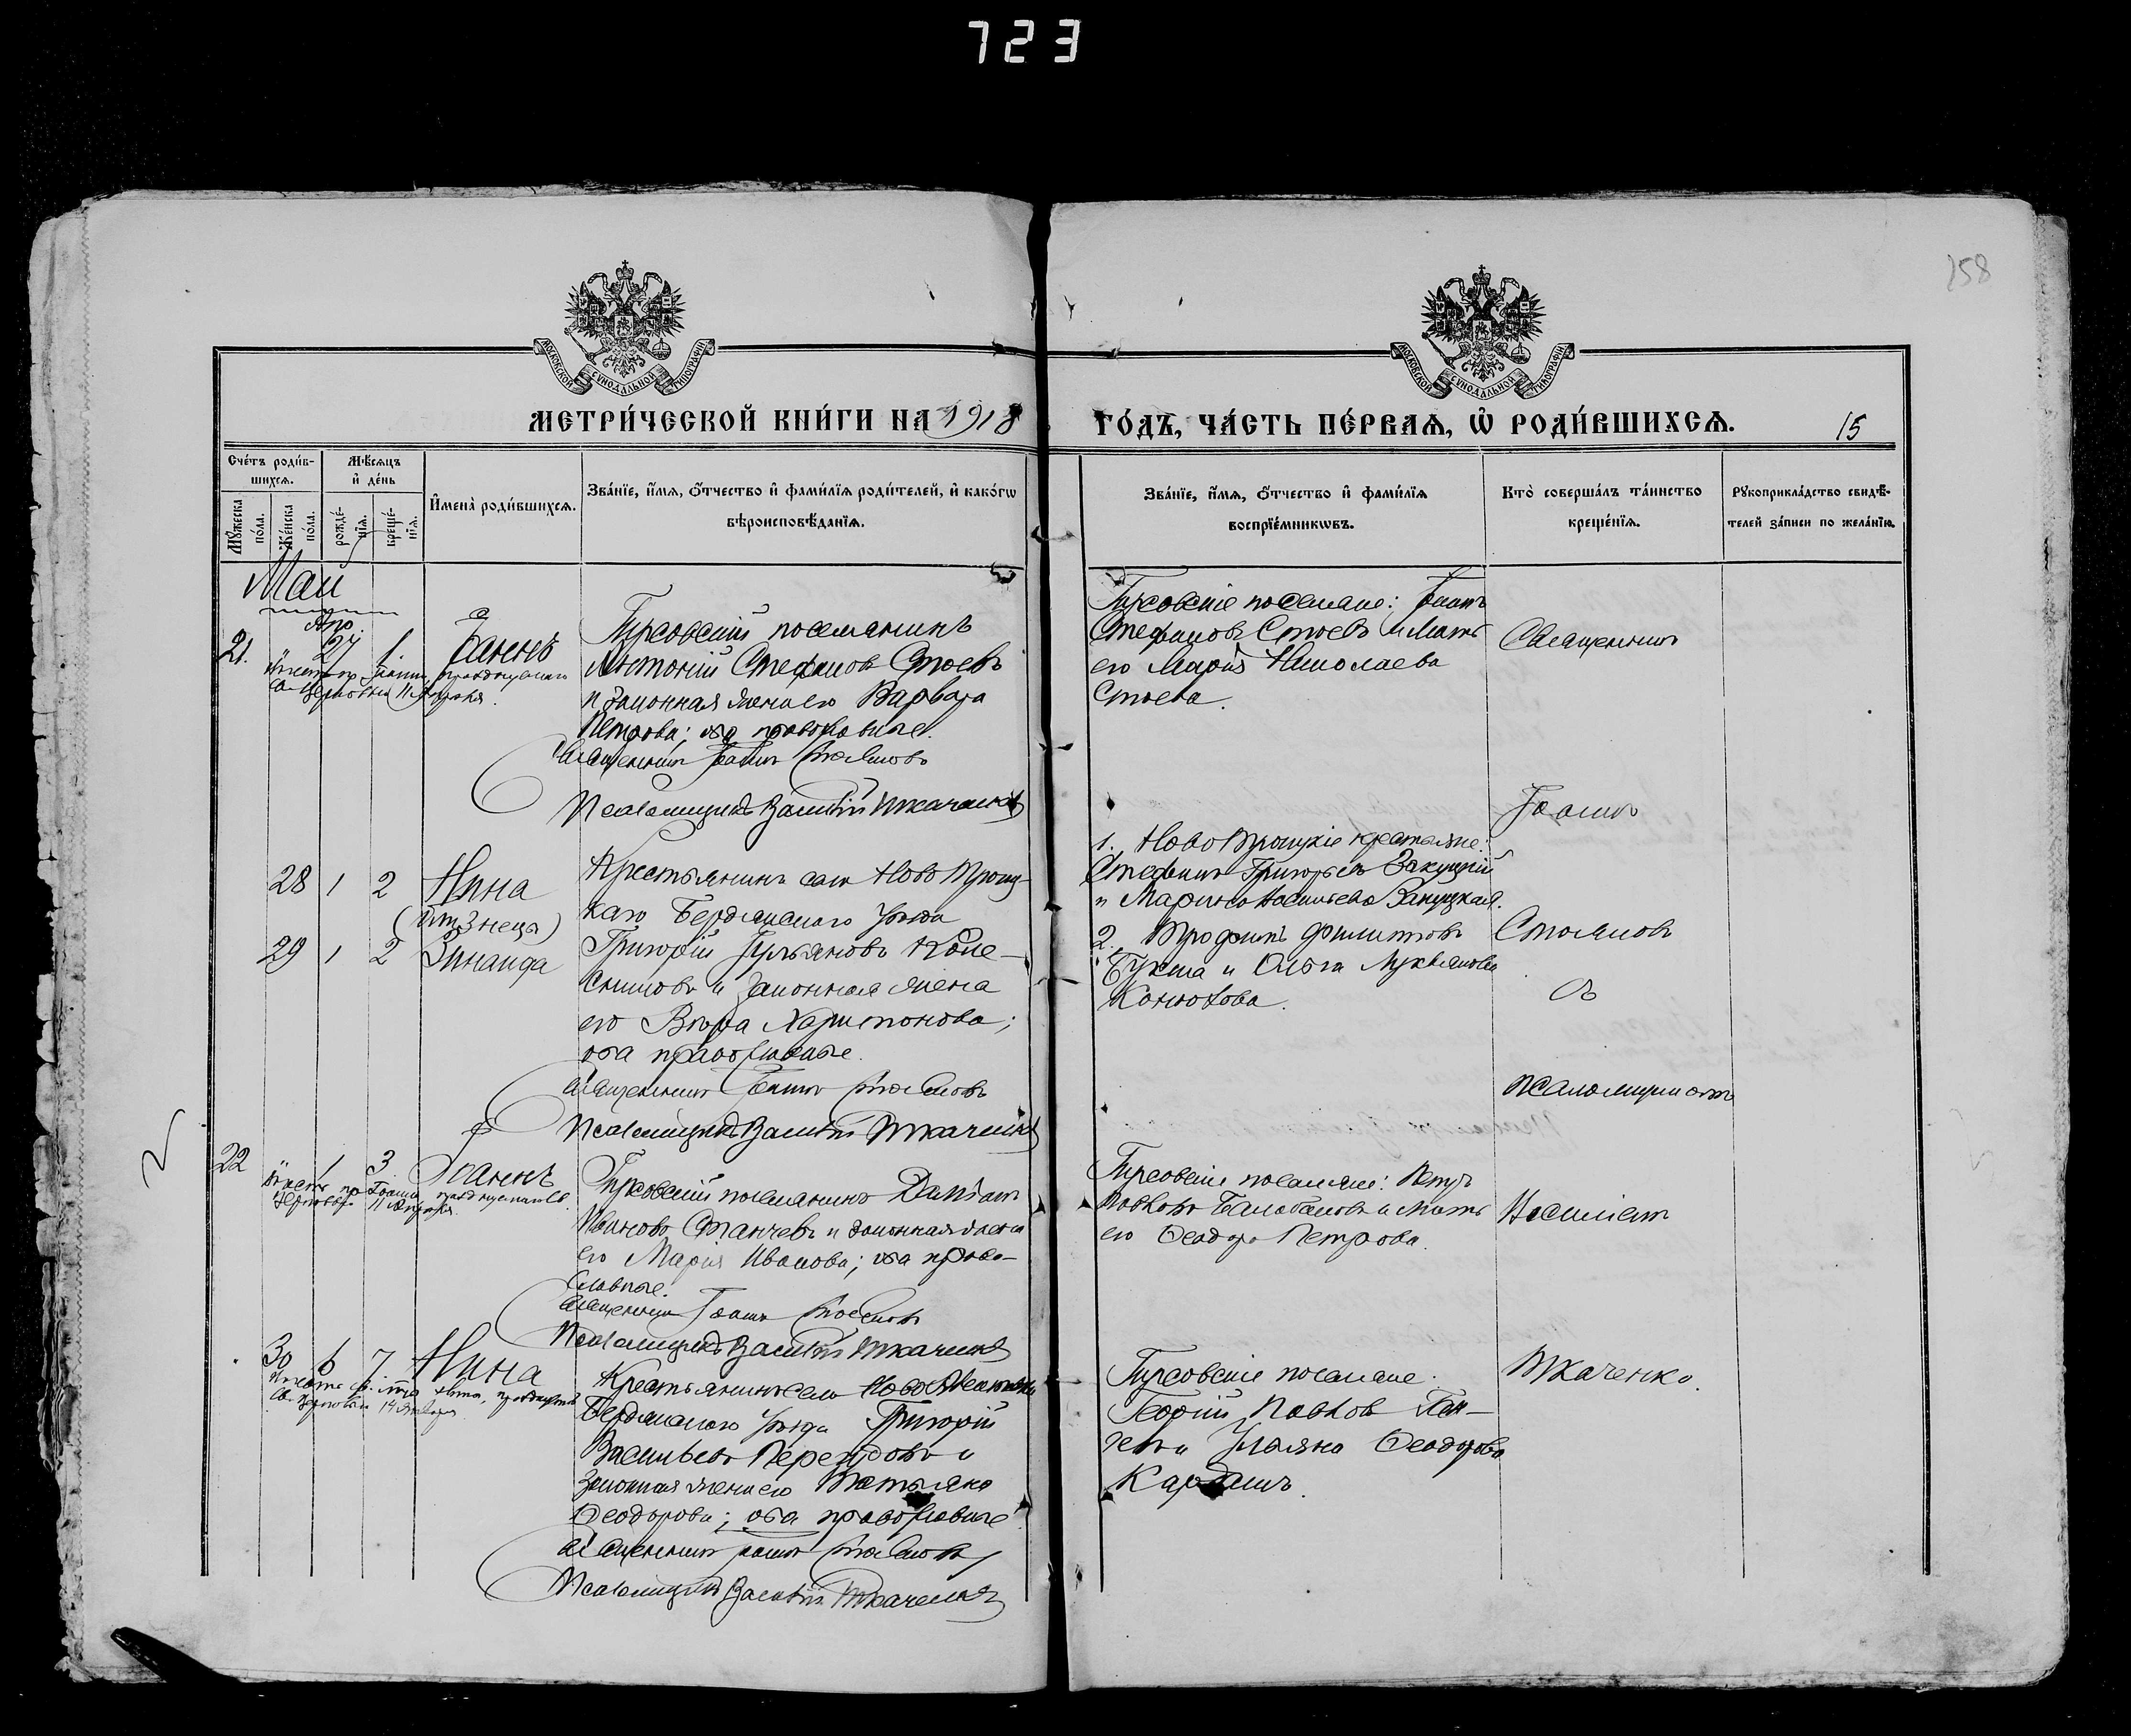 723
158
МОСКОВСКОЙ СѴНОДАЛЬНОЙ ТИПОГРАФІИ
МОСКОВСКОЙ СѴНОДАЛЬНОЙ ТИПОГРАФІИ
МЕТРИ́ЧЕСКОЙ КНИ́ГИ НА 1918
ГО́ДЪ, ЧА́СТЬ ПЕ́РВАѦ, Ѡ҆ РОДИ́ВШИХСѦ.
15
Сче́тъ роди́в-
шихсѧ.
Мѣ́сѧцъ
и҆ де́нь
Мꙋ́жеска
по́ла.
Же́нска
по́ла.
рожде́-
нїѧ.
креще́-
нїѧ.
И҆мена̀ роди́вшихсѧ.
Зва́нїе, и҆́мѧ, ѻ҆́тчество и҆ фами́лїѧ роди́телей, и҆ како́гѡ
вѣроисповѣ́данїѧ.
Зва́нїе, и҆́мѧ, ѻ҆́тчество и҆ фами́лїѧ
воспрїе́мникѡвъ.
Кто̀ соверша́лъ та́инство
креще́нїѧ.
Рꙋкоприкла́дство свидѣ́-
телей за́писи по жела́нїю.
Май
Апр.
21. 27 1 Іоаннъ
Гирсовскій поселянинъ
Антоній Стефановъ Стоевъ
и законная жена его Варвара
Петрова; оба православные.
Священникъ Іоаннъ Стояновъ
Псаломщикъ Василій Ткаченко
Гирсовскіе поселяне: Іоаннъ
Стефановъ Стоевъ и мать
его Марія Николаева
Стоева.
Священникъ
28 1 2 Нина
(близнецы)
29 1 2 Зинаида
Крестьянинъ села Ново Троиц-
каго Бердянскаго уѣзда
Григорій Гурьяновъ Коле-
сниковъ и законная жена
его Вѣра Харитонова;
оба православные.
Священникъ Іоаннъ Стояновъ
Псаломщикъ Василій Ткаченко
Іоаннъ
1. Ново Троицкіе крестьяне:
Стефанъ Григорьевъ Закуцкій
и Марина Васильева Закуцкая.
2. Трофимъ Филиповъ
Букша и Ольга Лукьянова
Конюхова.
Стояновъ
съ
псаломщикомъ
22 1 3 Іоаннъ
Гирсовскій поселянинъ Даміанъ
Ивановъ Станчевъ и законная жена
его Марія Иванова; оба право-
славные.
Священникъ Іоаннъ Стояновъ
Псаломщикъ Василій Ткаченко
Гирсовскіе поселяне: Петръ
Павловъ Балабановъ и мать
его Ѳеодора Петрова.
Василіемъ
30 6 7 Нина
Крестьянинъ села Ново
Бердянскаго уѣзда Григорій
Васильевъ и
законная жена его Татьяна
Ѳеодорова; оба православные
Священникъ Іоаннъ Стояновъ
Псаломщикъ Василій Ткаченко
Гирсовскіе поселяне:
Георгій Павлов Ген-
чевъ и Ульяна Ѳеодорова
Кардашъ.
Ткаченко.